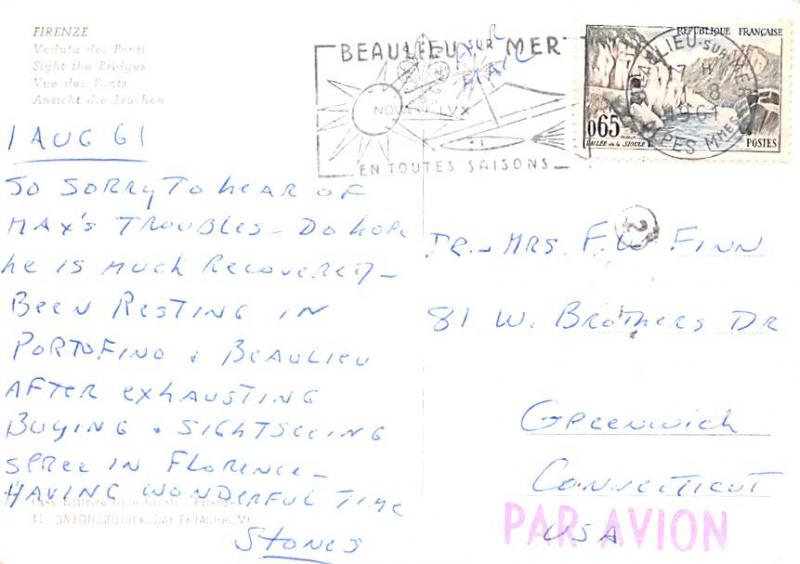 FIRENZE
Veduta dei Ponti
Sight the Bridges
Vue des Ponts
Ansicht die Brücken
1 AUG 61
SO SORRY TO HEAR OF
MAX'S TROUBLES - DO HOPE
HE IS MUCH RECOVERED -
BEEN RESTING IN
PORTOFINO & BEAULIEU
AFTER EXHAUSTING
BUYING & SIGHTSEEING
SPREE IN FLORENCE -
HAVING WONDERFUL TIME
STONES
BEAULIEU SUR MER
AIR
MAIL
NOVA LVX
EN TOUTES SAISONS
REPUBLIQUE FRANÇAISE
0,65
VALLÉE de la SIOULE
POSTES
BEAULIEU-SUR-MER
17 H
8
1961
ALPES Mmes
DR - MRS. F.W. FINN
81 W. BROTHERS DR
GREENWICH
CONNECTICUT
USA
PAR AVION